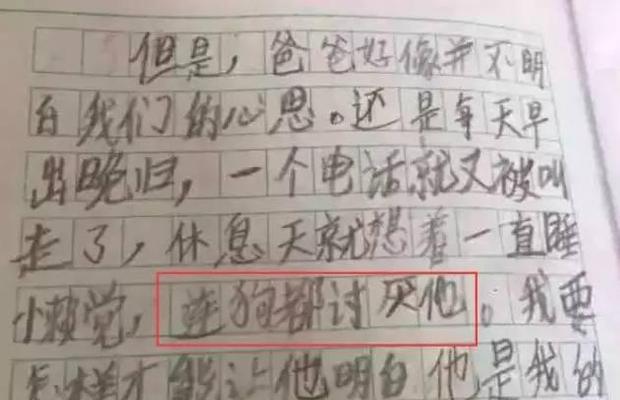 但是，爸爸好像并不明
白我们的心思。还是每天早
出晚归，一个电话就又被叫
走了，休息天就想着一直睡
小赖觉，连狗都讨厌他。我要
怎样才能让他明白他是我的